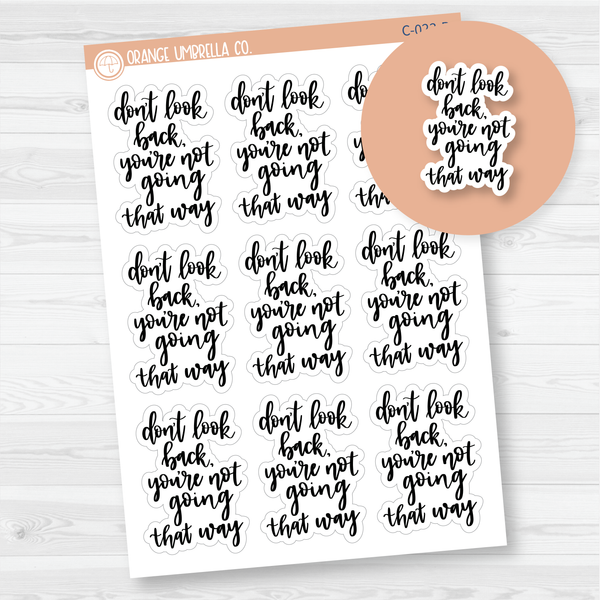 ORANGE UMBRELLA CO.
don't look
back,
you're not
going
that way
don't look
back,
you're not
going
that way
don't look
back,
you're not
going
that way
don't look
back,
you're not
going
that way
don't look
back,
you're not
going
that way
don't look
back,
you're not
going
that way
don't look
back,
you're not
going
that way
don't look
back,
you're not
going
that way
don't look
back,
you're not
going
that way